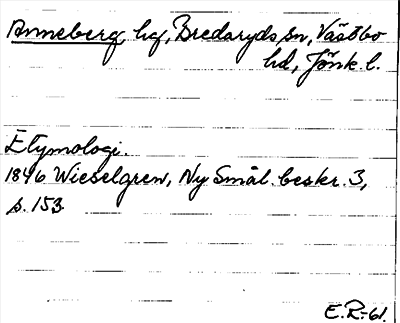 Anneberg hg, Bredaryds sn, Västbo
hd, Jönk. l.
Etymologi.
1846 Wieselgren, Ny Smål. beskr. 3,
s. 153
E.R.-61.